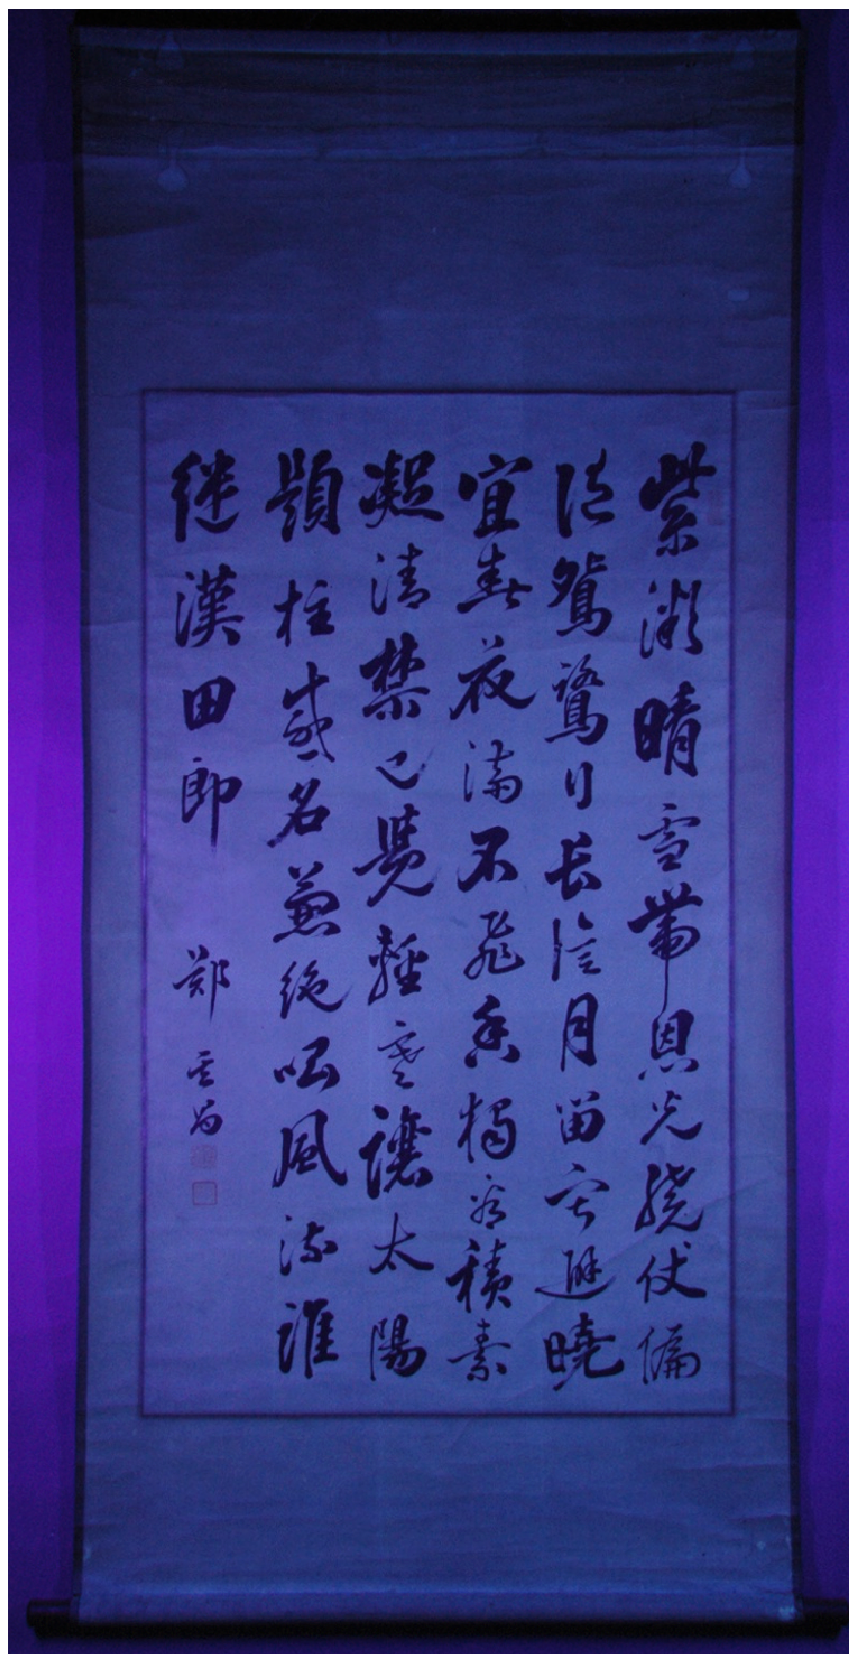 紫微晴雪帶恩光繞仗偏
随鴛鷺行長信月留寧避曉
宜春花滿不飛香獨看積素
凝清禁已覺輕寒讓太陽
題柱盛名兼絶唱風流誰
継漢田郎 鄭